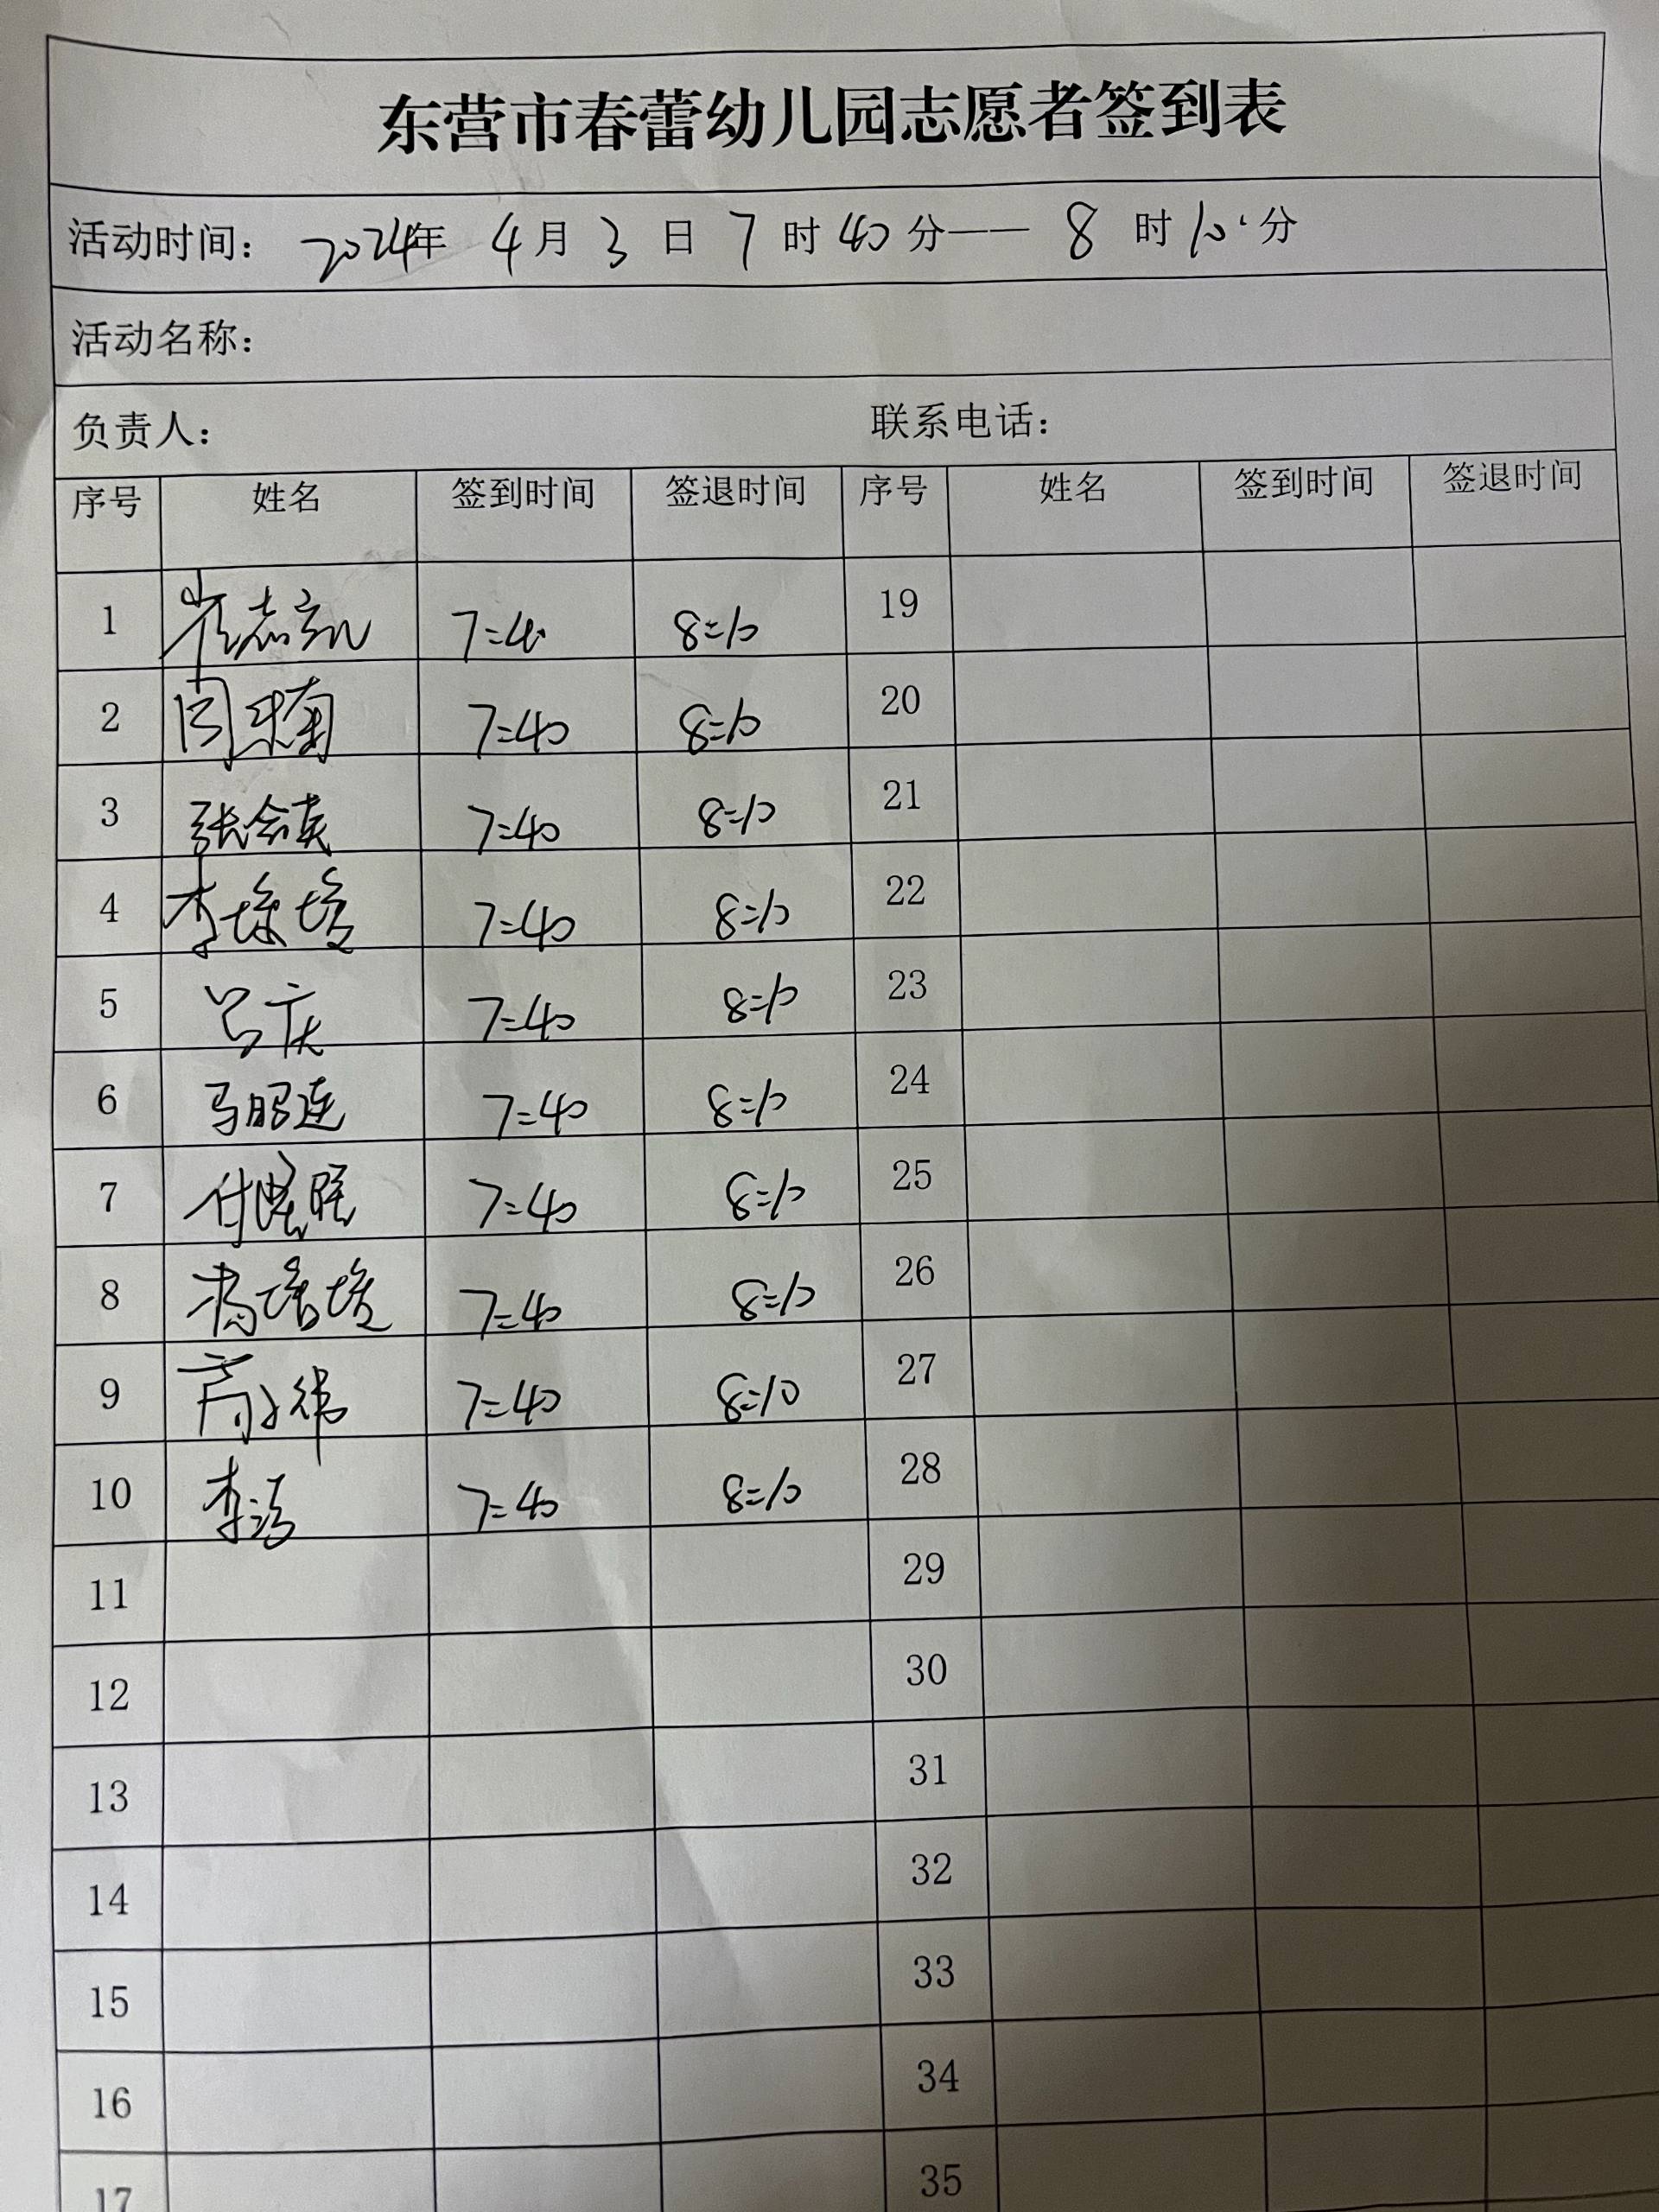 东营市春蕾幼儿园志愿者签到表
活动时间： 2024年 4月 3日 7时 40分—— 8时 10分
活动名称：
负责人： 联系电话：
序号 姓名 签到时间 签退时间 序号 姓名 签到时间 签退时间
1 7=40 8=10 19
2 周 7=40 8=10 20
3 张会英 7=40 8=10 21
4 李 7=40 8=10 22
5 吕庆 7=40 8=10 23
6 马昭连 7=40 8=10 24
7 付 7=40 8=10 25
8 冯 7=40 8=10 26
9 7=40 8=10 27
10 李洁 7=40 8=10 28
11 29
12 30
13 31
14 32
15 33
16 34
17 35